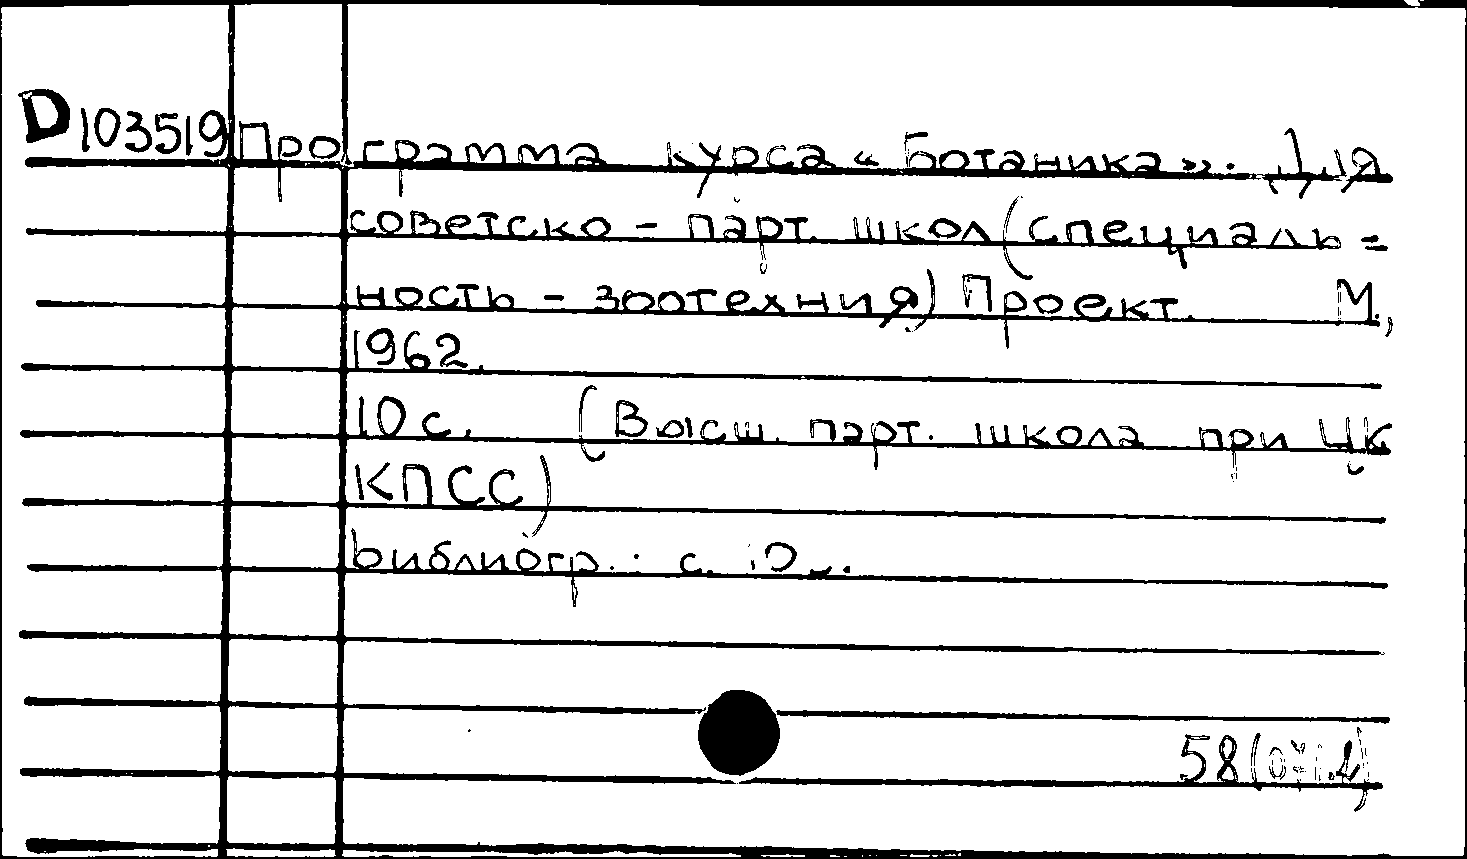 D103519 Программа курса «Ботаника». Для
советско - парт. школ (специаль =
ность - зоотехния) Проект. М.,
1962.
10 с. (Высш. парт. школа при ЦК
КПСС)
Библиогр.: с. 10.